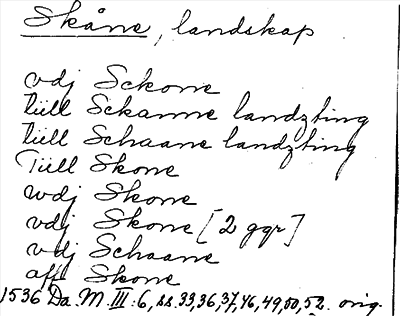 Skåne, landskap
vdj Sckone
tiill Sckanne landzting
tiill Schaane landzting
Tiill Skone
wdj Skone
vdj Skone [2 ggr]
vdj Schaane
aff Skone
1536 Da. M. III: 6, ss. 33, 36, 37, 46, 49, 50, 52. orig.